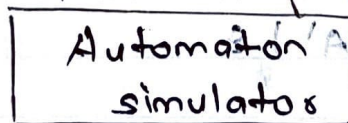 Automaton
simulator